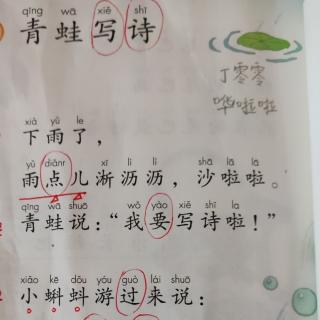 qīng wā xiě shī
青蛙写诗
丁零零
哗啦啦
xià yǔ le
下雨了，
yǔ diǎnr xī lì lì shā lā lā
雨点儿淅沥沥，沙啦啦。
qīng wā shuō yào xiě shī la
青蛙说：“我要写诗啦！”
xiǎo kē dǒu yóu guò lái shuō
小蝌蚪游过来说：